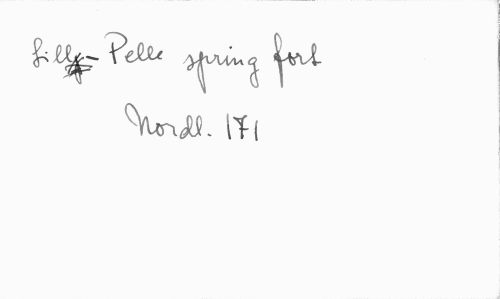 Lill-Pelle spring fort
Nordl. 171